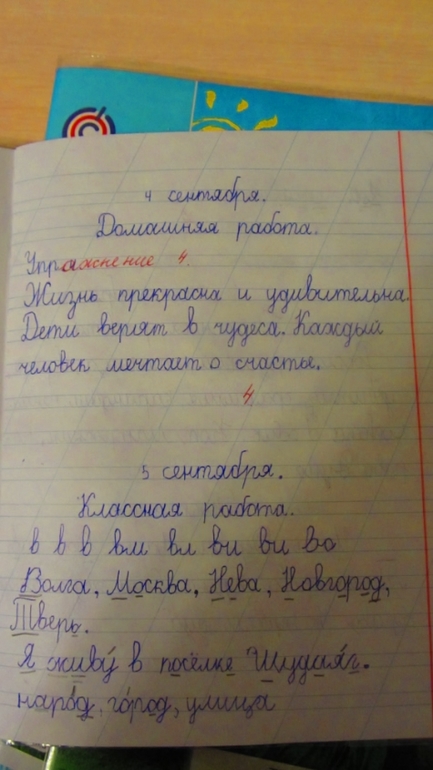 4 сентября.
Домашняя работа.
Упражнение 4.
Жизнь прекрасна и удивительна.
Дети верят в чудеса. Каждый
человек мечтает о счастье.
4
5 сентября.
Классная работа.
в в в вм вл ви ви во
Волга, Москва, Нева, Новгород,
Тверь.
Я живу́ в посёлке
наро́д, го́род, улица